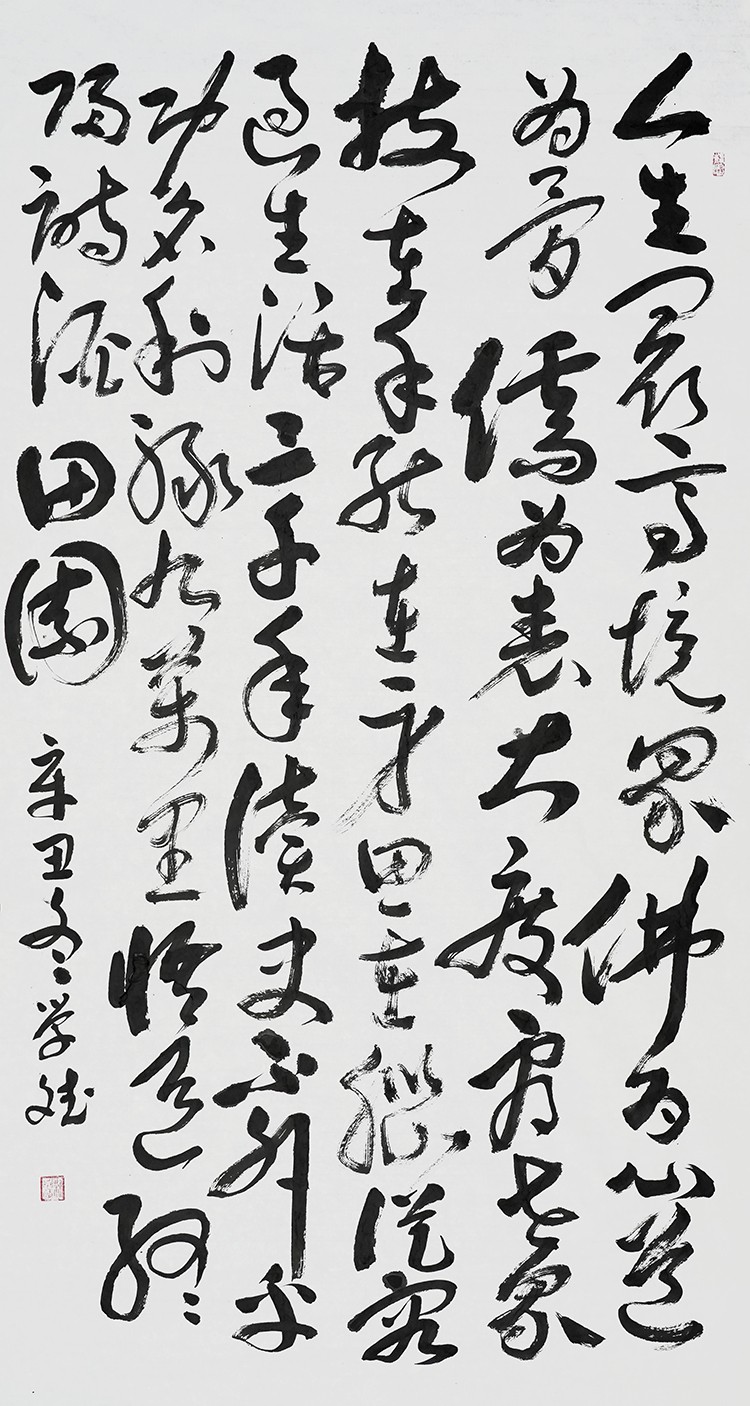 人生最高境界佛為心道
為骨儒為表大度看世界
技在手能在身思在腦從容
過生活三千年讀史不外乎
功名利祿九萬里悟道終
歸詩酒田園
辛丑冬学斌